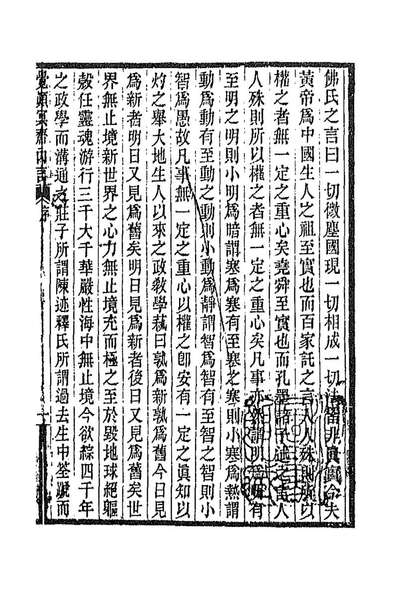 佛氏之言曰一切微塵國現一切相成一切法皆非眞實今夫
黃帝爲中國生人之祖至實也而百家託之言人人殊則所以
權之者無一定之重心矣堯舜至實也而孔墨諸氏述之言人
人殊則所以權之者無一定之重心矣凡事亦然謂明爲明有
至明之明則小明爲暗謂寒爲寒有至寒之寒則小寒爲熱謂
動爲動有至動之動則小動爲靜謂智爲智有至智之智則小
智爲愚故凡事無一定之重心以權之卽安有一定之眞知以
灼之舉大地生人以來之政敎學藉曰孰爲新孰爲舊今日見
爲新者明日又見爲舊矣明日見爲新者後日又見爲舊矣世
界無止境新世界之心力無止境充而極之至於毀地球絕軀
殼任靈魂游行三千大千華嚴性海中無止境今欲綜四千年
之政學而溝通之莊子所謂陳迹釋氏所謂過去生中筌蹏而
覺顛冥齋內言 序